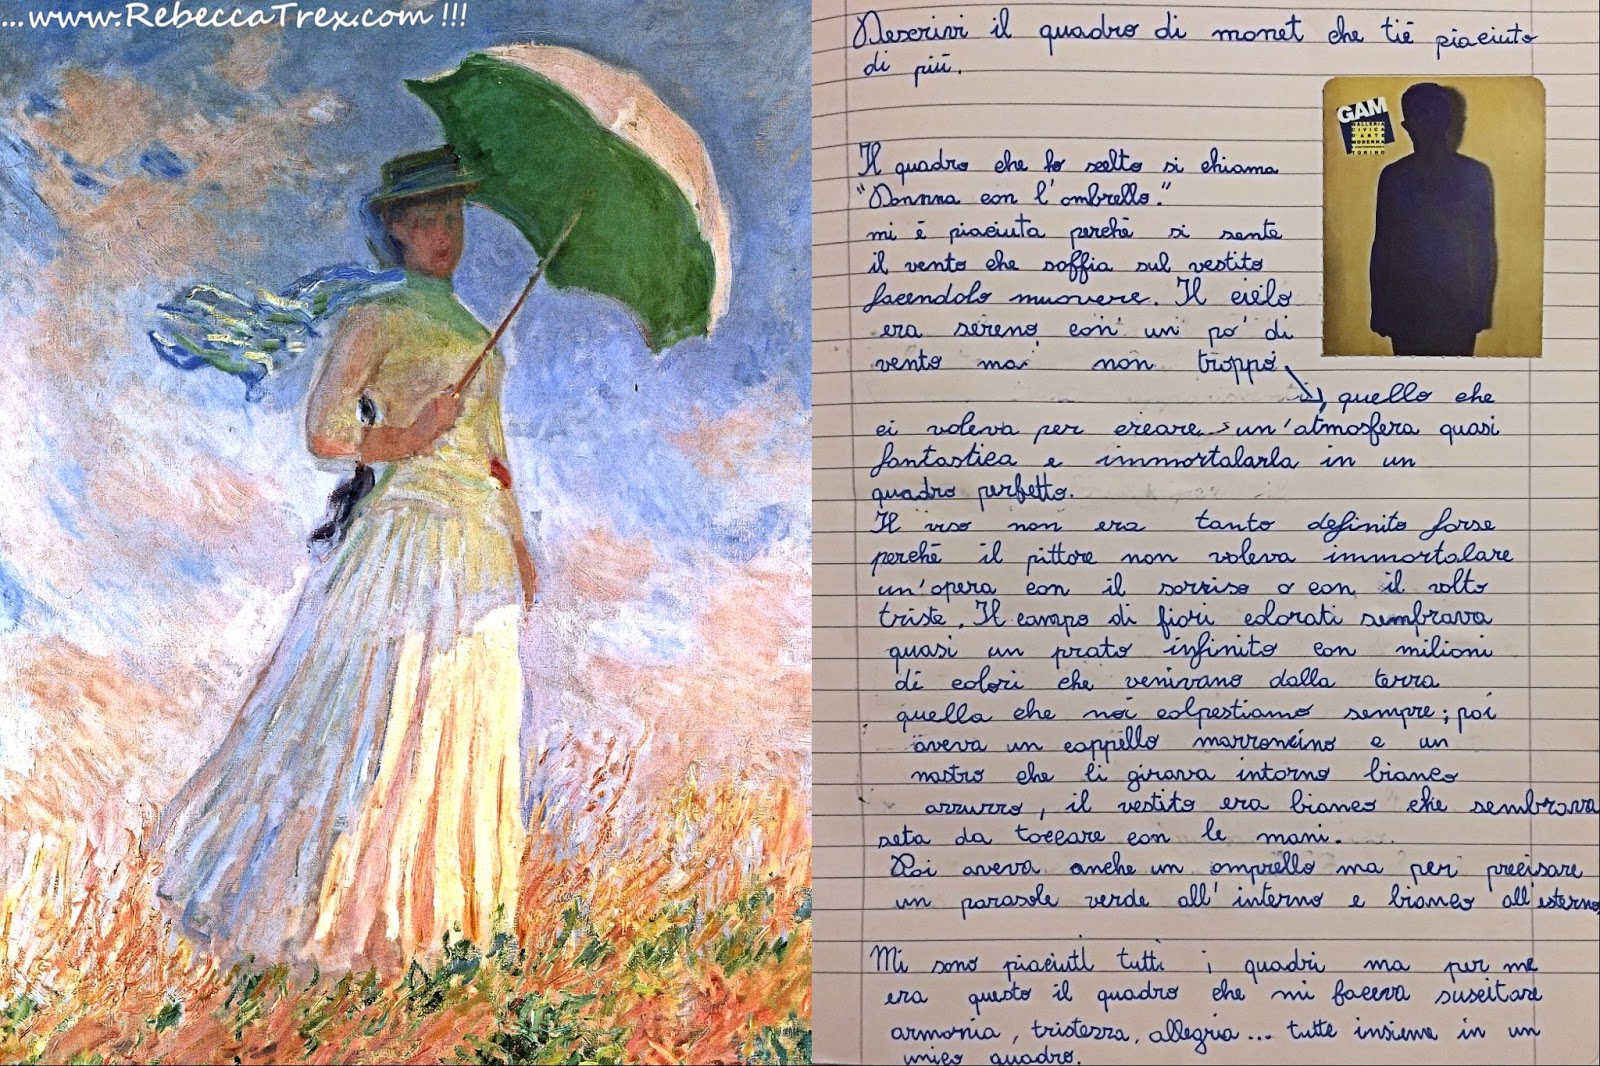 ...www.RebeccaTrex.com !!!
Descrivi il quadro di monet che tiè piaciuto
di più.
GAM
GALLERIA
CIVICA
D'ARTE
MODERNA
TORINO
Il quadro che ho scelto si chiama
"Donnna con l'ombrello."
mi è piaciuta perchè si sente
il vento che soffia sul vestito
facendolo muovere. Il cielo
era sereno, con un po' di
vento ma non troppo
, quello che
ci voleva per creare un'atmosfera quasi
fantastica e immortalarla in un
quadro perfetto.
Il viso non era tanto definito forse
perchè il pittore non voleva immortalare
un'opera con il sorriso o con il volto
triste. Il campo di fiori colorati sembrava
quasi un prato infinito con milioni
di colori che venivano dalla terra
quella che noi colpestiamo sempre; poi
aveva un cappello marroncino e un
nastro che li girava intorno bianco
azzurro, il vestito era bianco che sembrava
seta da toccare con le mani.
Poi aveva anche un omprello ma per precisare
un parasole verde all'interno e bianco all'esterno
Mi sono piaciuti tutti i quadri ma per me
era questo il quadro che mi faceva suscitare
armonia, tristezza, allegria... tutte insieme in un
unico quadro.